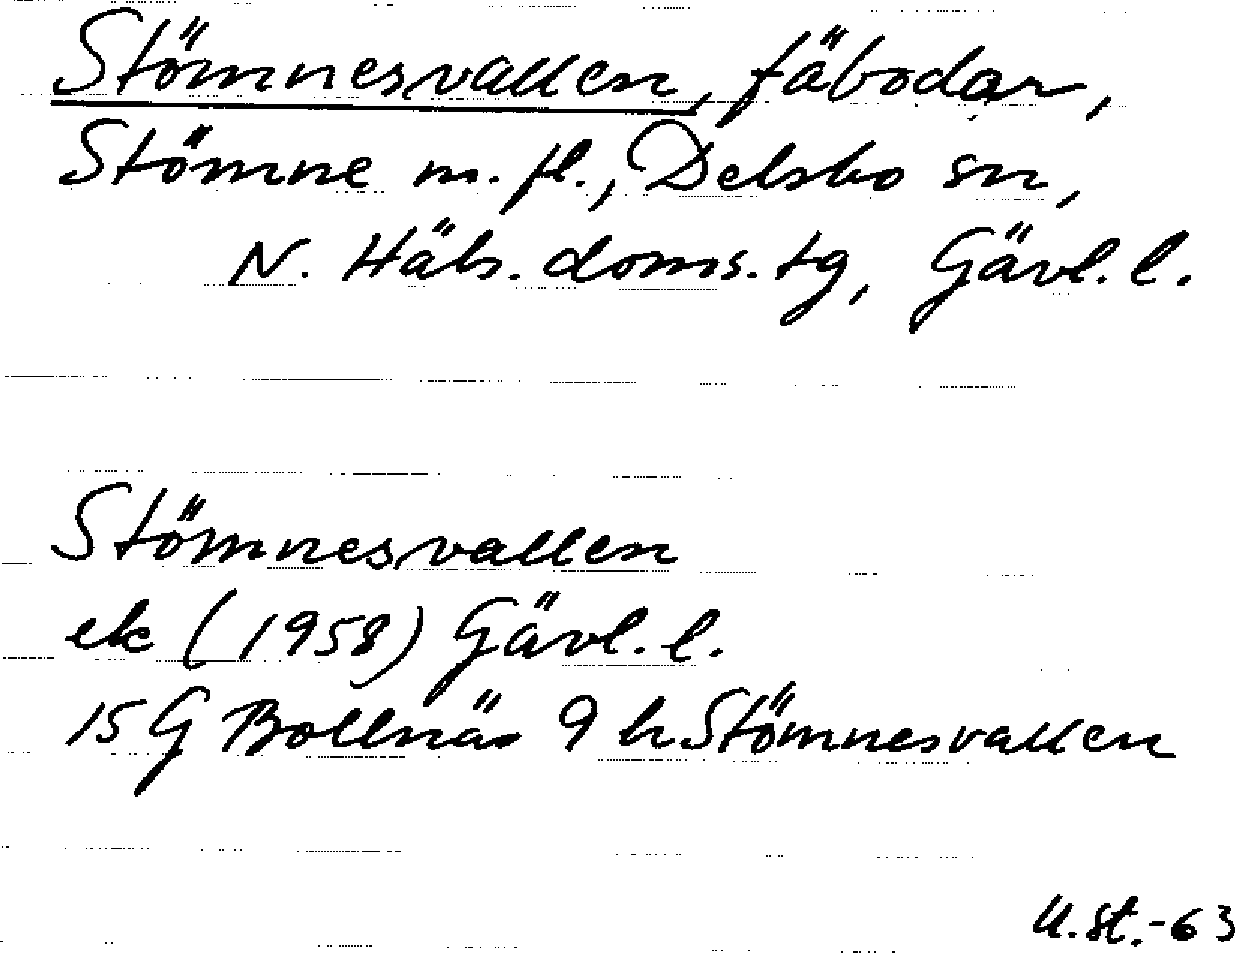 Stömnesvallen, fäbodar,
Stömne m. fl., Delsbo sn,
N. Häls. doms. tg, Gävl. l.
Stömnesvallen
ek (1958) Gävl. l.
15 G Bollnäs 9 h Stömnesvallen
U. St. - 63